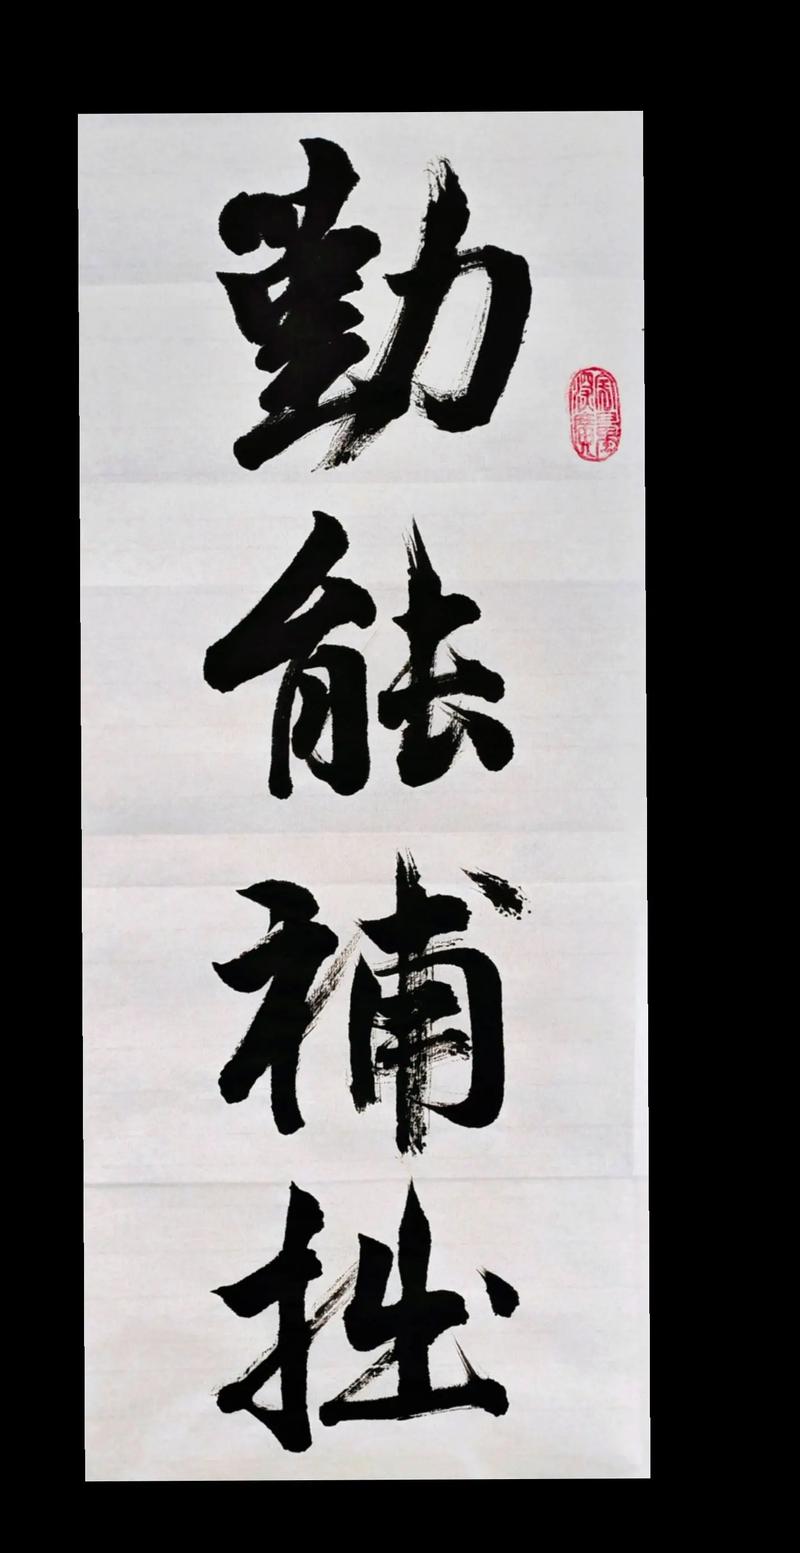 勤能補拙